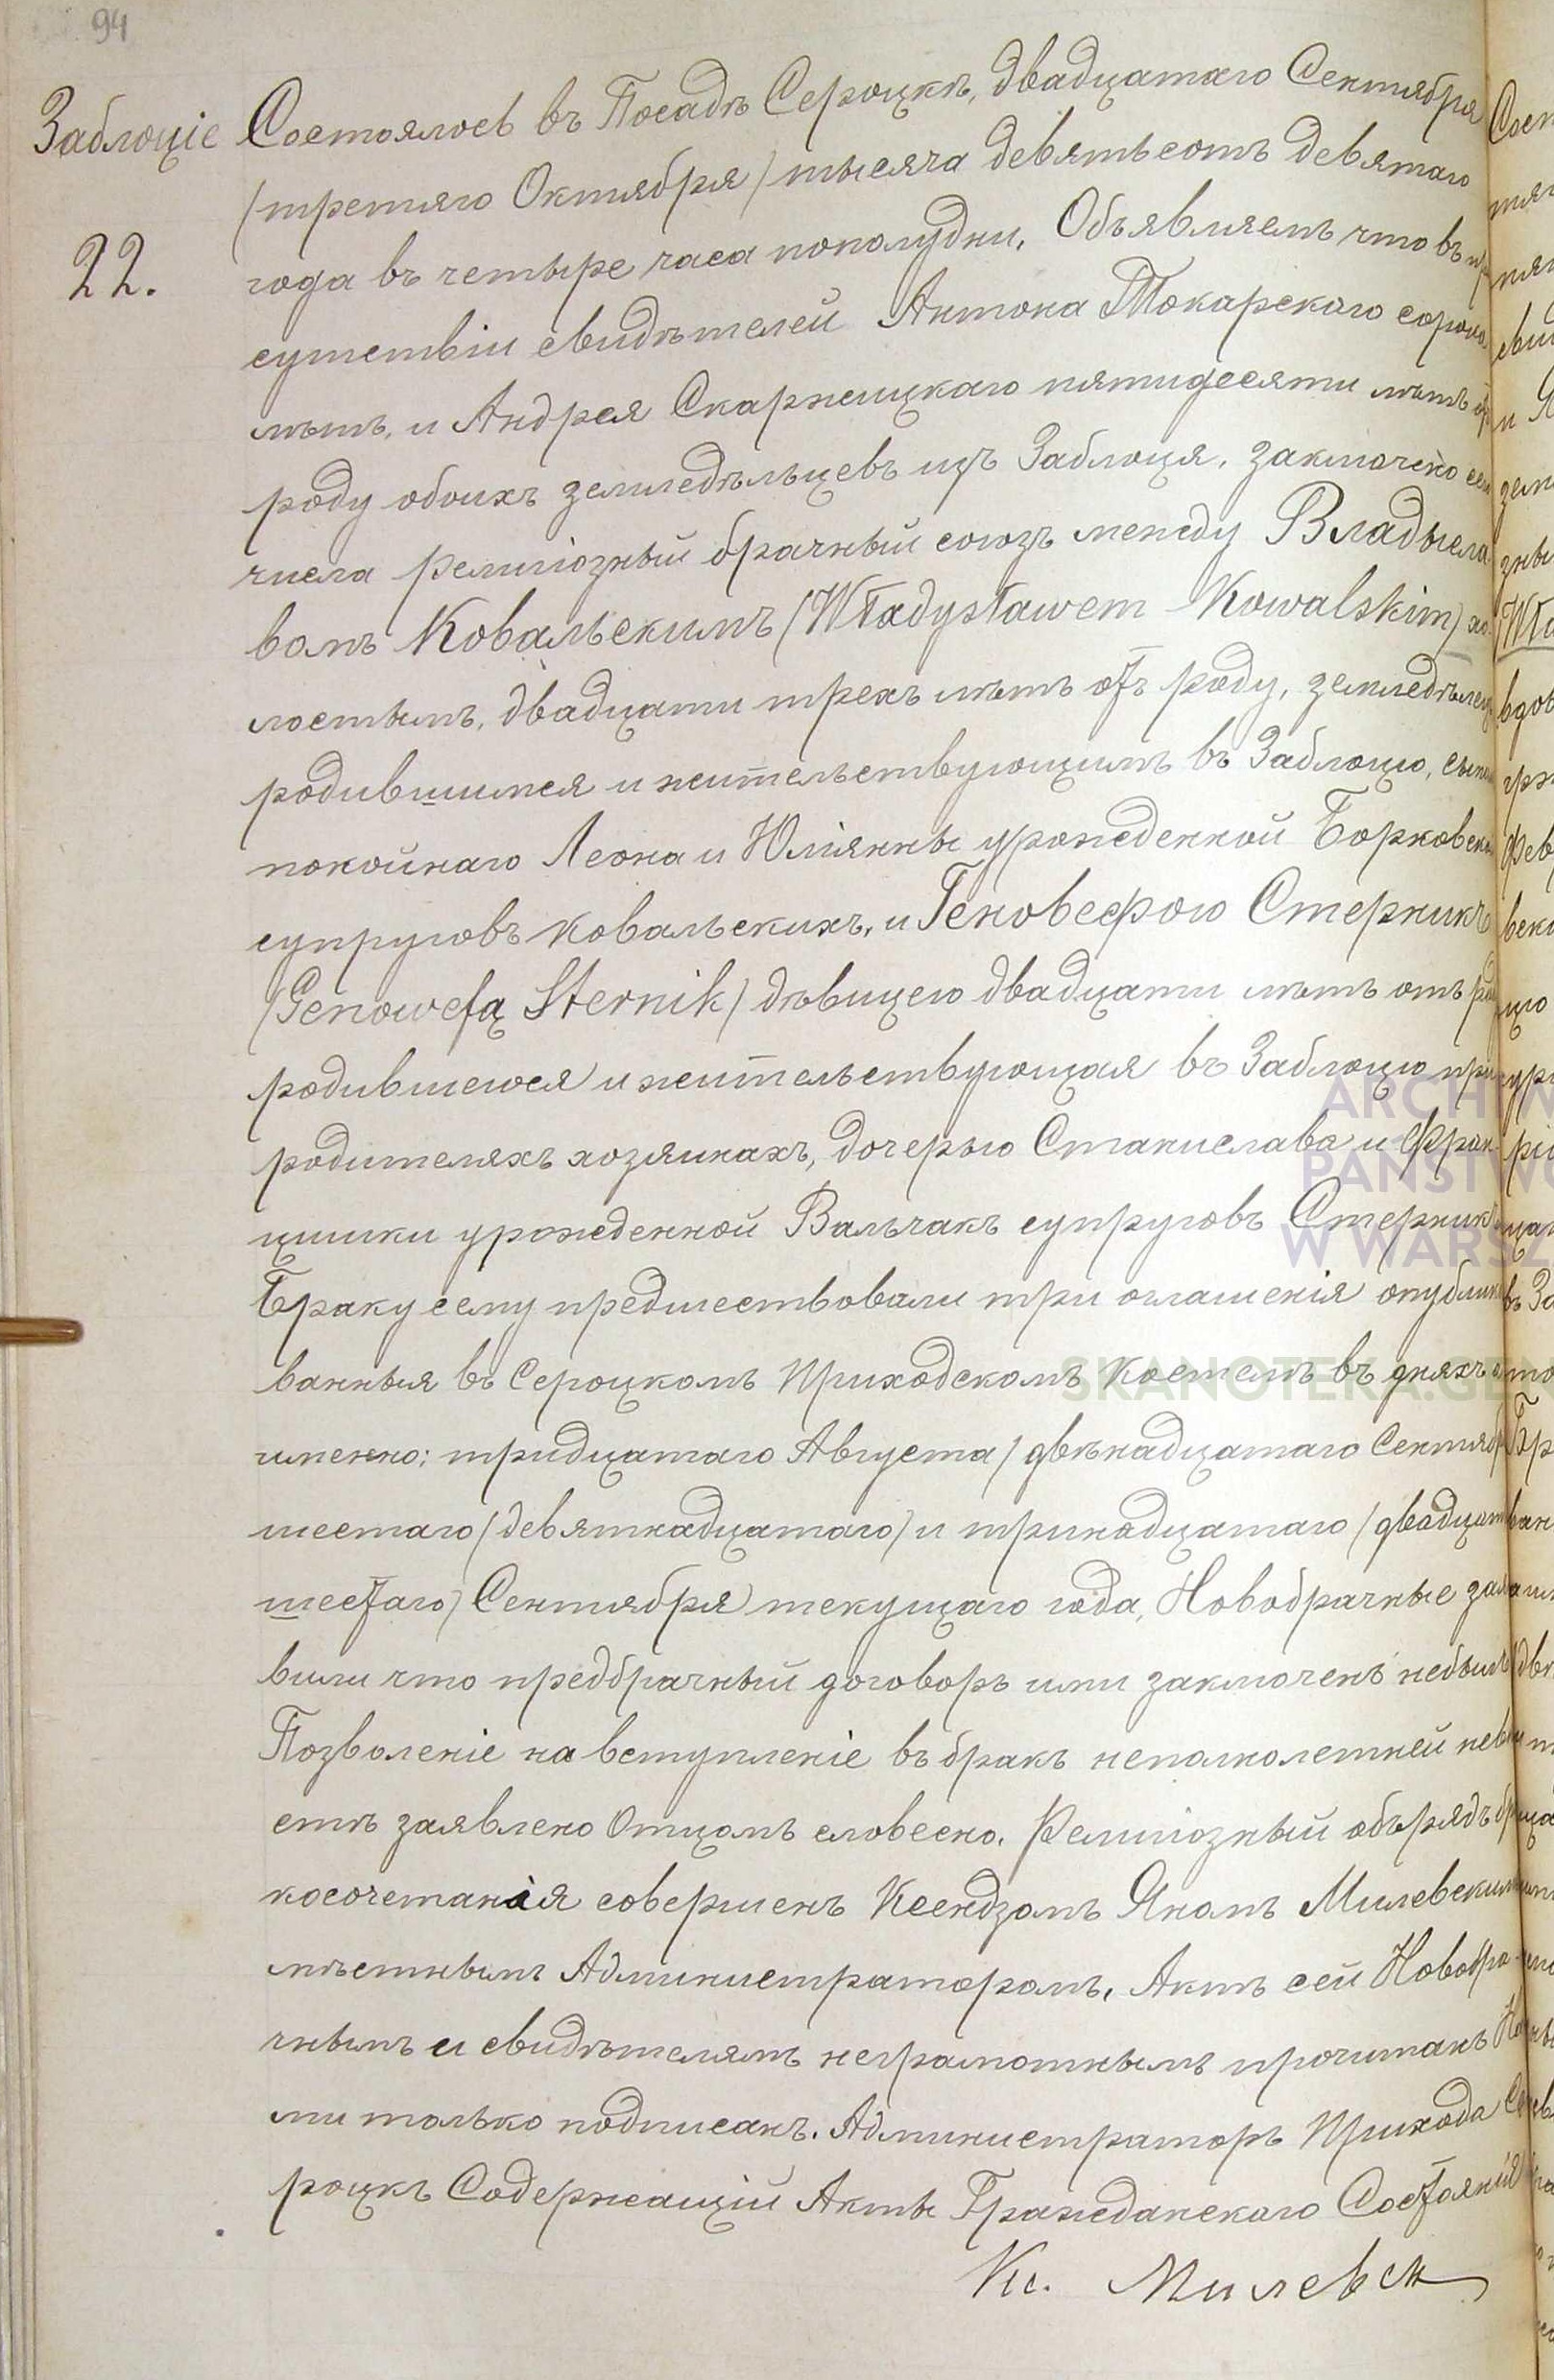 94
Заблоціе
22.
Состоялось въ Посадѣ Сероцкѣ, двадцатаго Сентября
(третяго Октября) тысяча девятьсотъ девятаго
года въ четыре часа пополудни. Объявляемъ что въ при
сутствіи свидѣтелей Антона Токарскаго сорока
лѣтъ, и Андрея Скаржицкаго пятидесяти лѣтъ отъ
роду обоихъ земледѣльцевъ изъ Заблоця, заключено сего
числа религіозный брачный союзъ между Владысла
вомъ Ковальскимъ (Władysławem Kowalskim) хо
лостымъ, двадцати трехъ лѣтъ отъ роду, земледѣлецъ
родившимся и жительствующимъ въ Заблоцю, сыномъ
покойнаго Леона и Юліянны урожденной Борковской
супруговъ Ковальскихъ, и Геновефою Стерникъ
(Genowefą Sternik) дѣвицею двадцати лѣтъ отъ роду
родившеюся и жительствующая въ Заблоцю при
родителяхъ хозяинахъ, дочерью Станислава и Фран
цишки урожденной Вальчакъ супруговъ Стерникъ
Браку сему предшествовали три оглашенія опублико
ванныя въ Сероцкомъ Приходскомъ Костелѣ въ дняхъ а
именно: тридцатаго Августа / двѣнадцатаго Сентября
шестаго (девятнадцатаго) и тринадцатаго (двадцать
шестаго) Сентября текущаго года, Новобрачные зая
вили что предбрачный договоръ ими заключенъ небылъ
Позволеніе на вступленіе въ бракъ неполнолетней невѣ
стѣ заявлено Отцомъ словесно. Религіозный обърядъ бра
косочетанія совершенъ Ксендзомъ Яномъ Милевскимъ
мѣстнымъ Администраторомъ, Актъ сей Новобра
чнымъ и свидѣтелямъ неграмотнымъ прочитанъ На
ми только подписанъ. Администраторъ Прихода Се
роцкъ Содержащій Акты Гражданскаго Состоянія
Кс. Милевск
ARCHIW
PAŃSTWO
W WARSZ
SKANOTEKA.GE